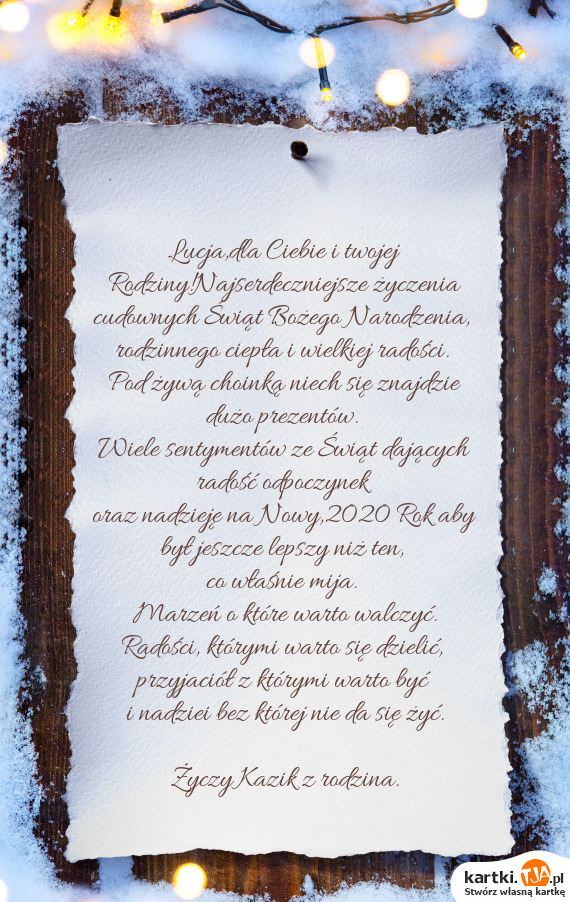 Lucja,dla Ciebie i twojej
Rodziny!Najserdeczniejsze życzenia
cudownych Świąt Bożego Narodzenia,
rodzinnego ciepła i wielkiej radości.
Pod żywą choinką niech się znajdzie
dużo prezentów.
Wiele sentymentów ze Świąt dających
radość odpoczynek
oraz nadzieję na Nowy,2020 Rok aby
był jeszcze lepszy niż ten,
co właśnie mija.
Marzeń o które warto walczyć.
Radości, którymi warto się dzielić,
przyjaciół z którymi warto być
i nadziei bez której nie da się żyć.
Życzy Kazik z rodzina.
kartki.TJA.pl
Stwórz własną kartkę